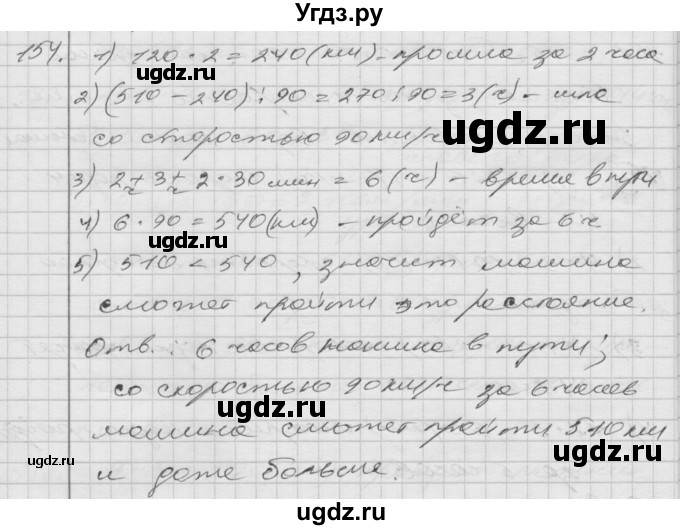 Угдз.ру
154. 1) 120 · 2 = 240 (км) - прошла за 2 часа
2) (510 - 240) : 90 = 270 : 90 = 3 (ч) - шла
со скоростью 90 км/ч
ugdz.ru
3) 2ч + 3ч + 2 · 30 мин = 6 (ч) - время в пути
4) 6 · 90 = 540 (км) - пройдёт за 6 ч
ugdz.ru ugdz.ru
5) 510 < 540, значит машина
сможет пройти это расстояние.
ugdz.ru
Отв.: 6 часов машина в пути;
ugdz.ru
со скоростью 90 км/ч за 6 часов
ugdz.ru
машина сможет пройти 510 км
ugdz.ru ugdz.ru
и даже больше.
ugdz.ru